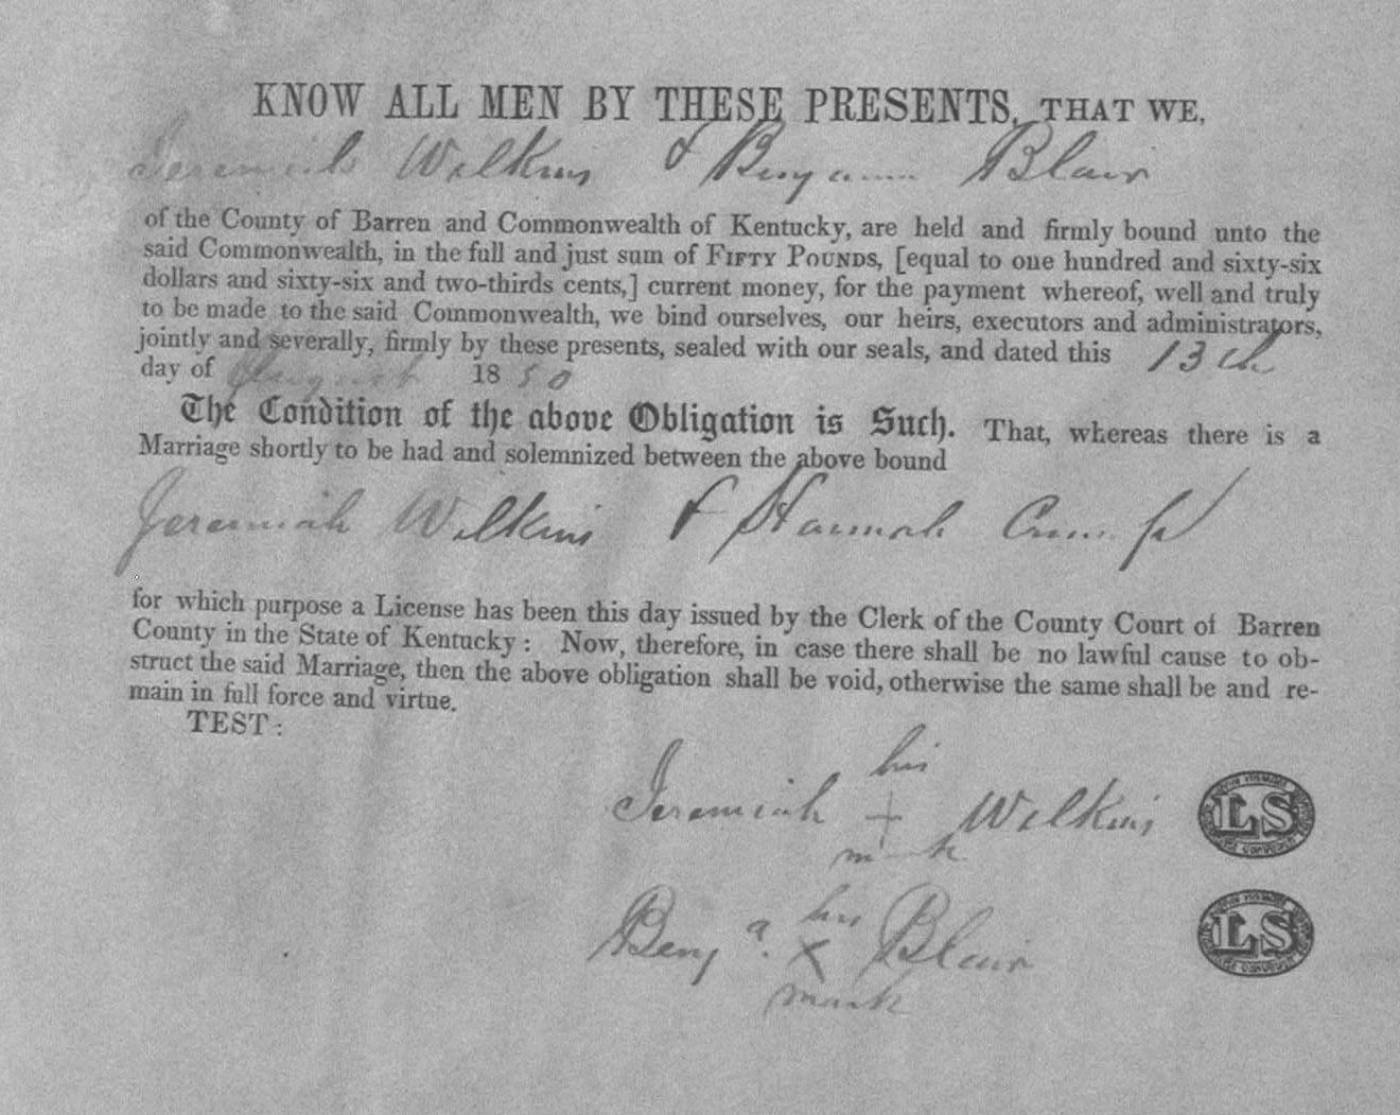 KNOW ALL MEN BY THESE PRESENTS, THAT WE,
Jeremiah Wilkins & Benjamin Blair
of the County of Barren and Commonwealth of Kentucky, are held and firmly bound unto the
said Commonwealth, in the full and just sum of FIFTY POUNDS, [equal to one hundred and sixty-six
dollars and sixty-six and two-thirds cents,] current money, for the payment whereof, well and truly
to be made to the said Commonwealth, we bind ourselves, our heirs, executors and administrators,
jointly and severally, firmly by these presents, sealed with our seals, and dated this 13th
day of August 1850
The Condition of the above Obligation is Such. That, whereas there is a
Marriage shortly to be had and solemnized between the above bound
Jeremiah Wilkins & Hannah
for which purpose a License has been this day issued by the Clerk of the County Court of Barren
County in the State of Kentucky: Now, therefore, in case there shall be no lawful cause to ob-
struct the said Marriage, then the above obligation shall be void, otherwise the same shall be and re-
main in full force and virtue.
TEST:
his
Jeremiah + Wilkins LS
mark
his
Benja. X Blair LS
mark